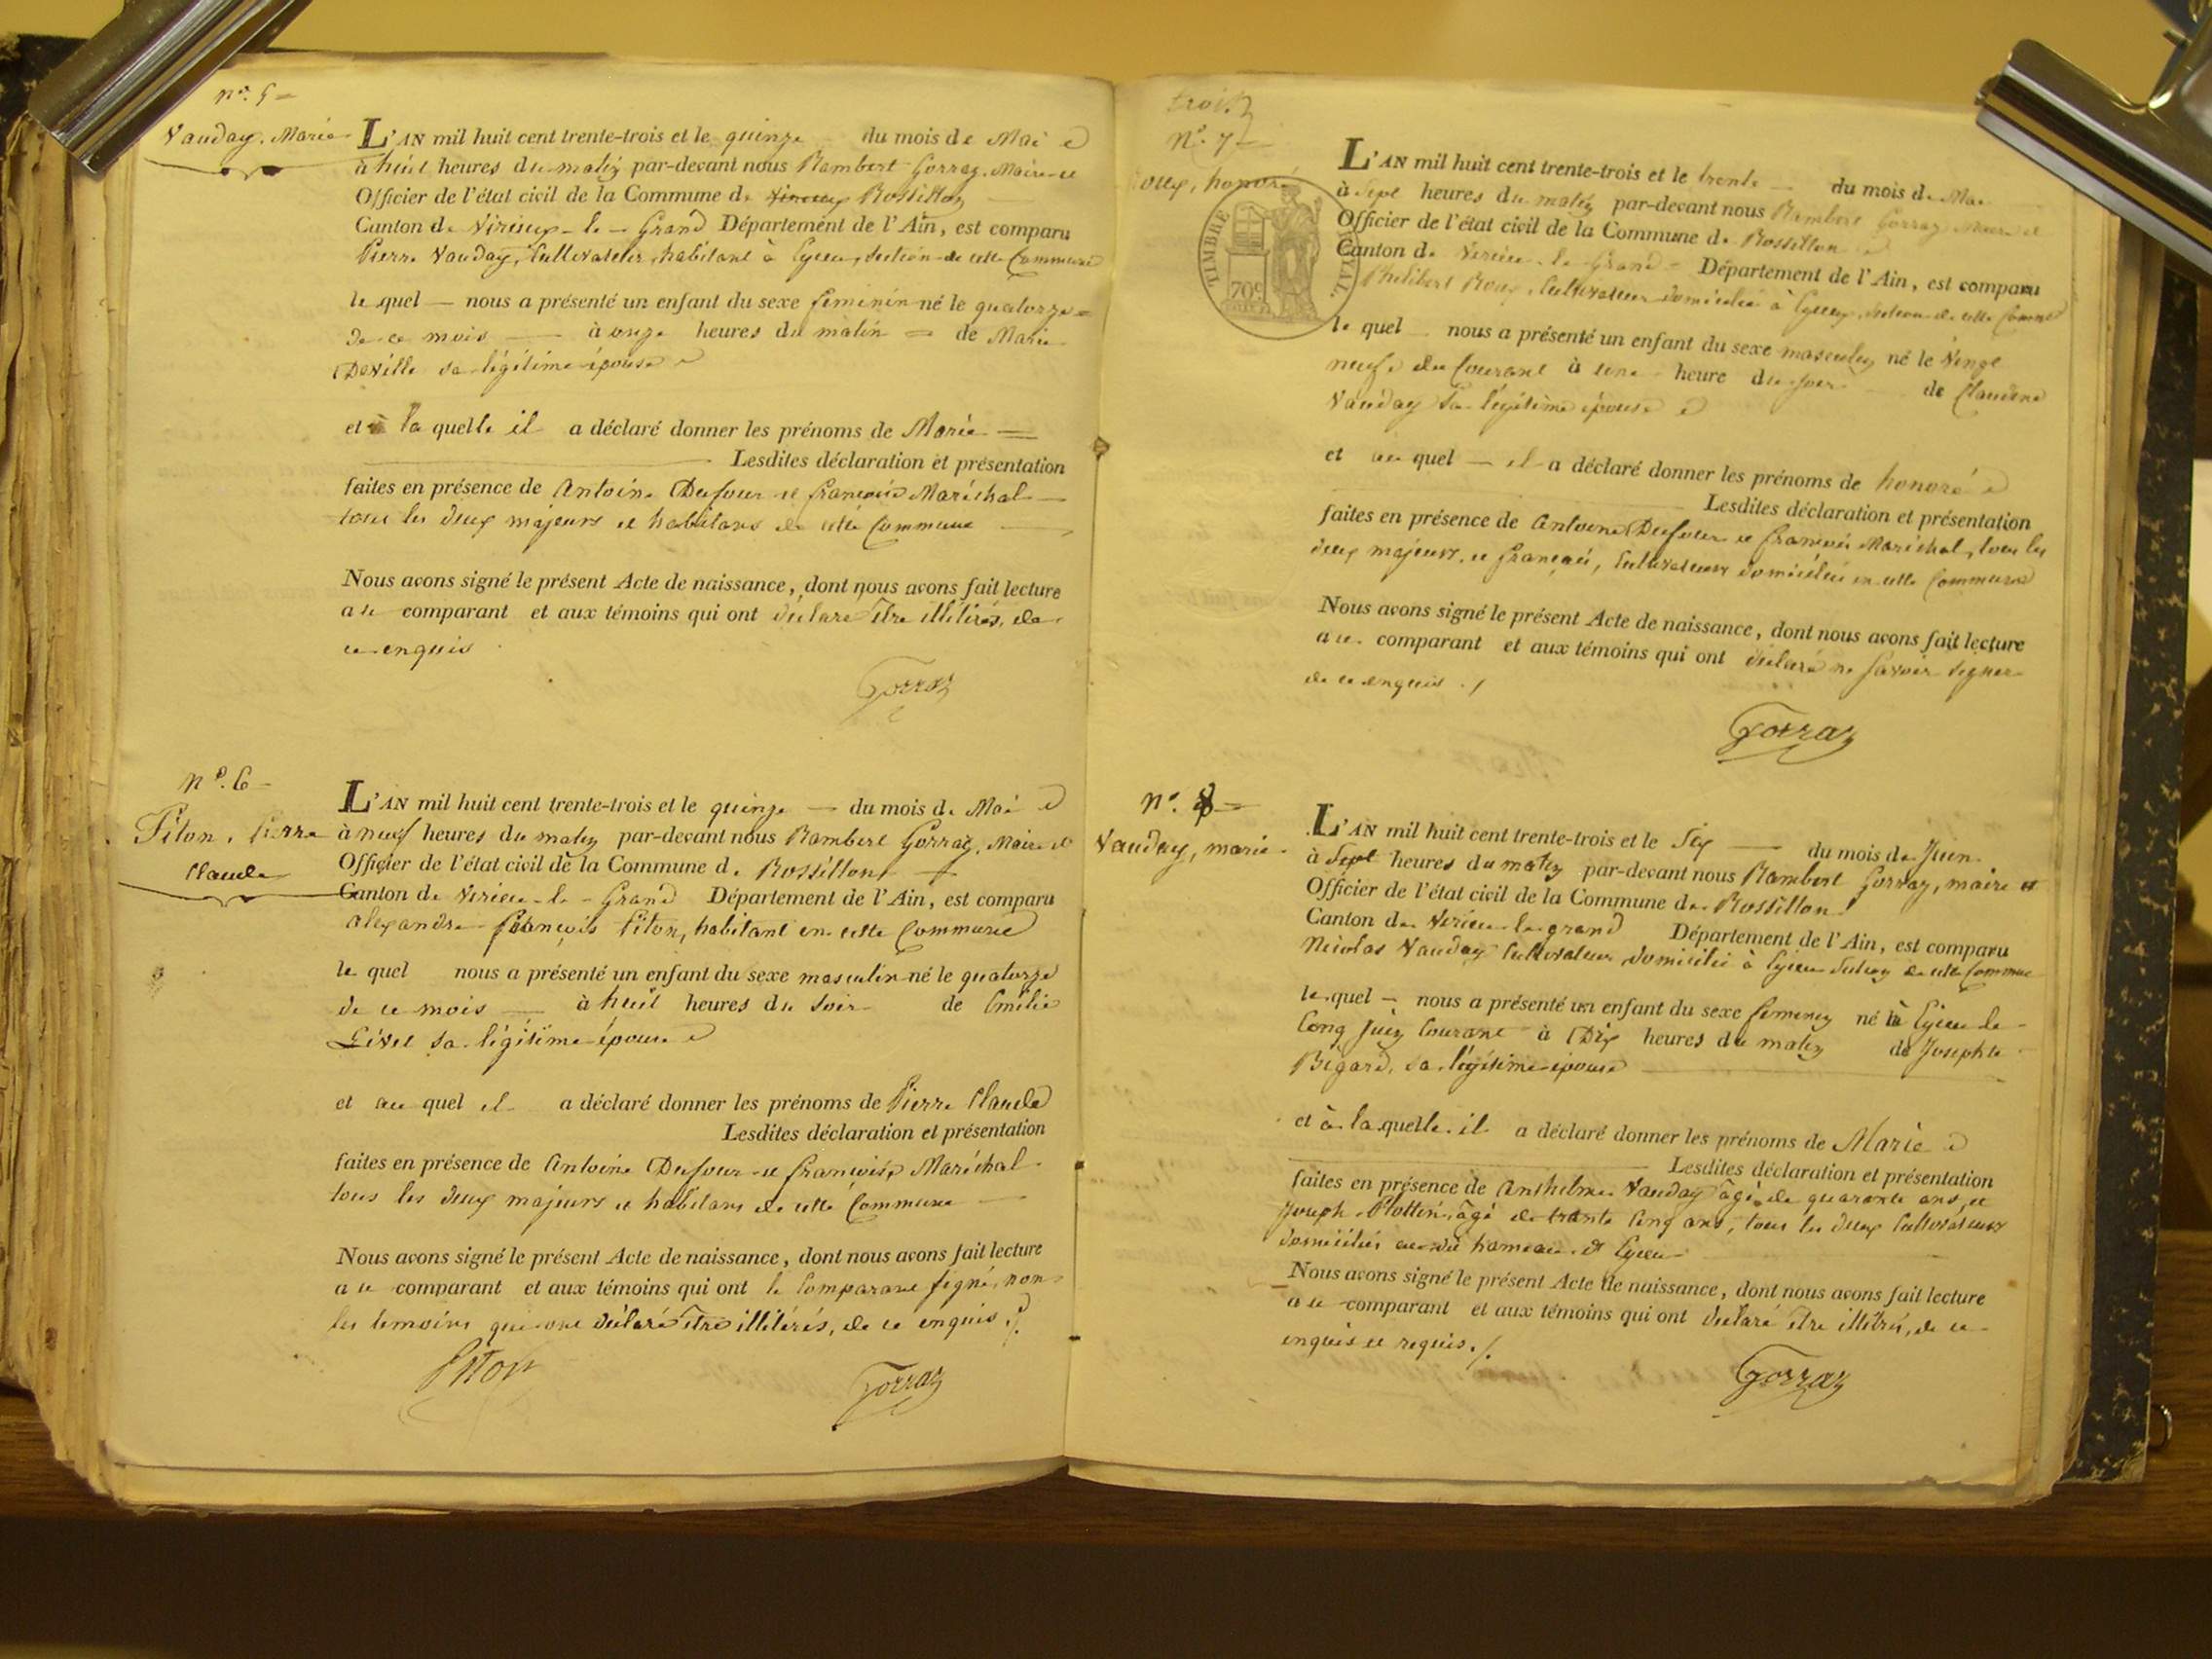 n°. 5
Vauday, Marie
L'AN mil huit cent trente-trois et le quinze du mois de Mai
à huit heures du matin par-devant nous Rambert Gorraz, Maire et
Officier de l'état civil de la Commune de Rossillon
Canton de Virieux-le-Grand Département de l'Ain, est comparu
Pierre Vauday, Cultivateur, habitant à Eyieu, section de cette Commune
le quel nous a présenté un enfant du sexe féminin né le quatorze
de ce mois à onze heures du matin de Marie
Deville sa légitime épouse
et à la quelle il a déclaré donner les prénoms de Marie
Lesdites déclaration et présentation
faites en présence de Antoine Dufour et françois Maréchal
tous les deux majeurs et habitans de cette Commune
Nous avons signé le présent Acte de naissance, dont nous avons fait lecture
au comparant et aux témoins qui ont déclaré être illitérés, de
ce enquis
Gorraz
n°. 6
Piton, Pierre
Claude
L'AN mil huit cent trente-trois et le quinze du mois de Mai
à neuf heures du matin par-devant nous Rambert Gorraz, Maire et
Officier de l'état civil de la Commune de Rossillon
Canton de Virieu-le-Grand Département de l'Ain, est comparu
alexandre françois Piton, habitant en cette Commune
le quel nous a présenté un enfant du sexe masculin né le quatorze
de ce mois à huit heures du soir de Emélie
Livet sa légitime épouse
et au quel il a déclaré donner les prénoms de Pierre Claude
Lesdites déclaration et présentation
faites en présence de Antoine Dufour et françois Maréchal
tous les deux majeurs et habitans de cette Commune
Nous avons signé le présent Acte de naissance, dont nous avons fait lecture
au comparant et aux témoins qui ont le Comparant signé, non
les témoins qui ont déclaré être illitérés, de ce enquis ./.
Piton Gorraz
trois
N°. 7
Roux, honoré
TIMBRE ROYAL.
70c
L'AN mil huit cent trente-trois et le trente du mois de Mai
à Sept heures du matin par-devant nous Rambert Gorraz Maire et
Officier de l'état civil de la Commune de Rossillon
Canton de Virieu-le-Grand Département de l'Ain, est comparu
Philibert Roux, Cultivateur domicilié à Eyieu, section de cette Commune
le quel nous a présenté un enfant du sexe masculin né le Vingt
neuf du Courant à une heure du soir de Claudine
Vauday sa légitime épouse
et au quel il a déclaré donner les prénoms de honoré
Lesdites déclaration et présentation
faites en présence de Antoine Dufour et françois Maréchal, tous les
deux majeurs, et français, Cultivateurs domiciliés en cette Commune
Nous avons signé le présent Acte de naissance, dont nous avons fait lecture
au comparant et aux témoins qui ont déclaré ne savoir signer
de ce enquis ./
Gorraz
n°. 8
Vauday, marie
L'AN mil huit cent trente-trois et le Six du mois de Juin
à Sept heures du matin par-devant nous Rambert Gorraz, maire et
Officier de l'état civil de la Commune de Rossillon
Canton de Virieu-le-grand Département de l'Ain, est comparu
Nicolas Vauday Cultivateur domicilié à Eyieu Section de cette Commune
le quel nous a présenté un enfant du sexe féminin né à Eyieu le
Cinq Juin Courant à Dix heures du matin de Josephte
Bigard, sa légitime épouse
et à la quelle il a déclaré donner les prénoms de Marie
Lesdites déclaration et présentation
faites en présence de Anthelme Vauday âgé de quarante ans, et
Joseph Plottin, âgé de trente Cinq ans, tous les deux Cultivateurs
domiciliés au dit hameau d'Eyieu
Nous avons signé le présent Acte de naissance, dont nous avons fait lecture
au comparant et aux témoins qui ont déclaré être illitérés, de ce
enquis et requis ./.
Gorraz